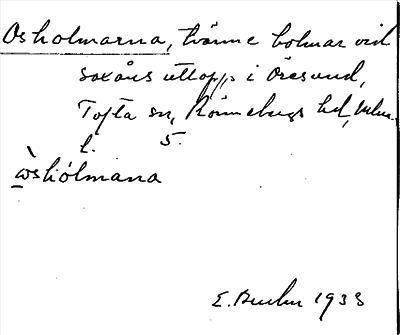 Osholmarna, tvänne holmar vid
Saxåns utlopp i Öresund,
Tofta sn, Rönnebergs hd,
L. 5.
E. 1933